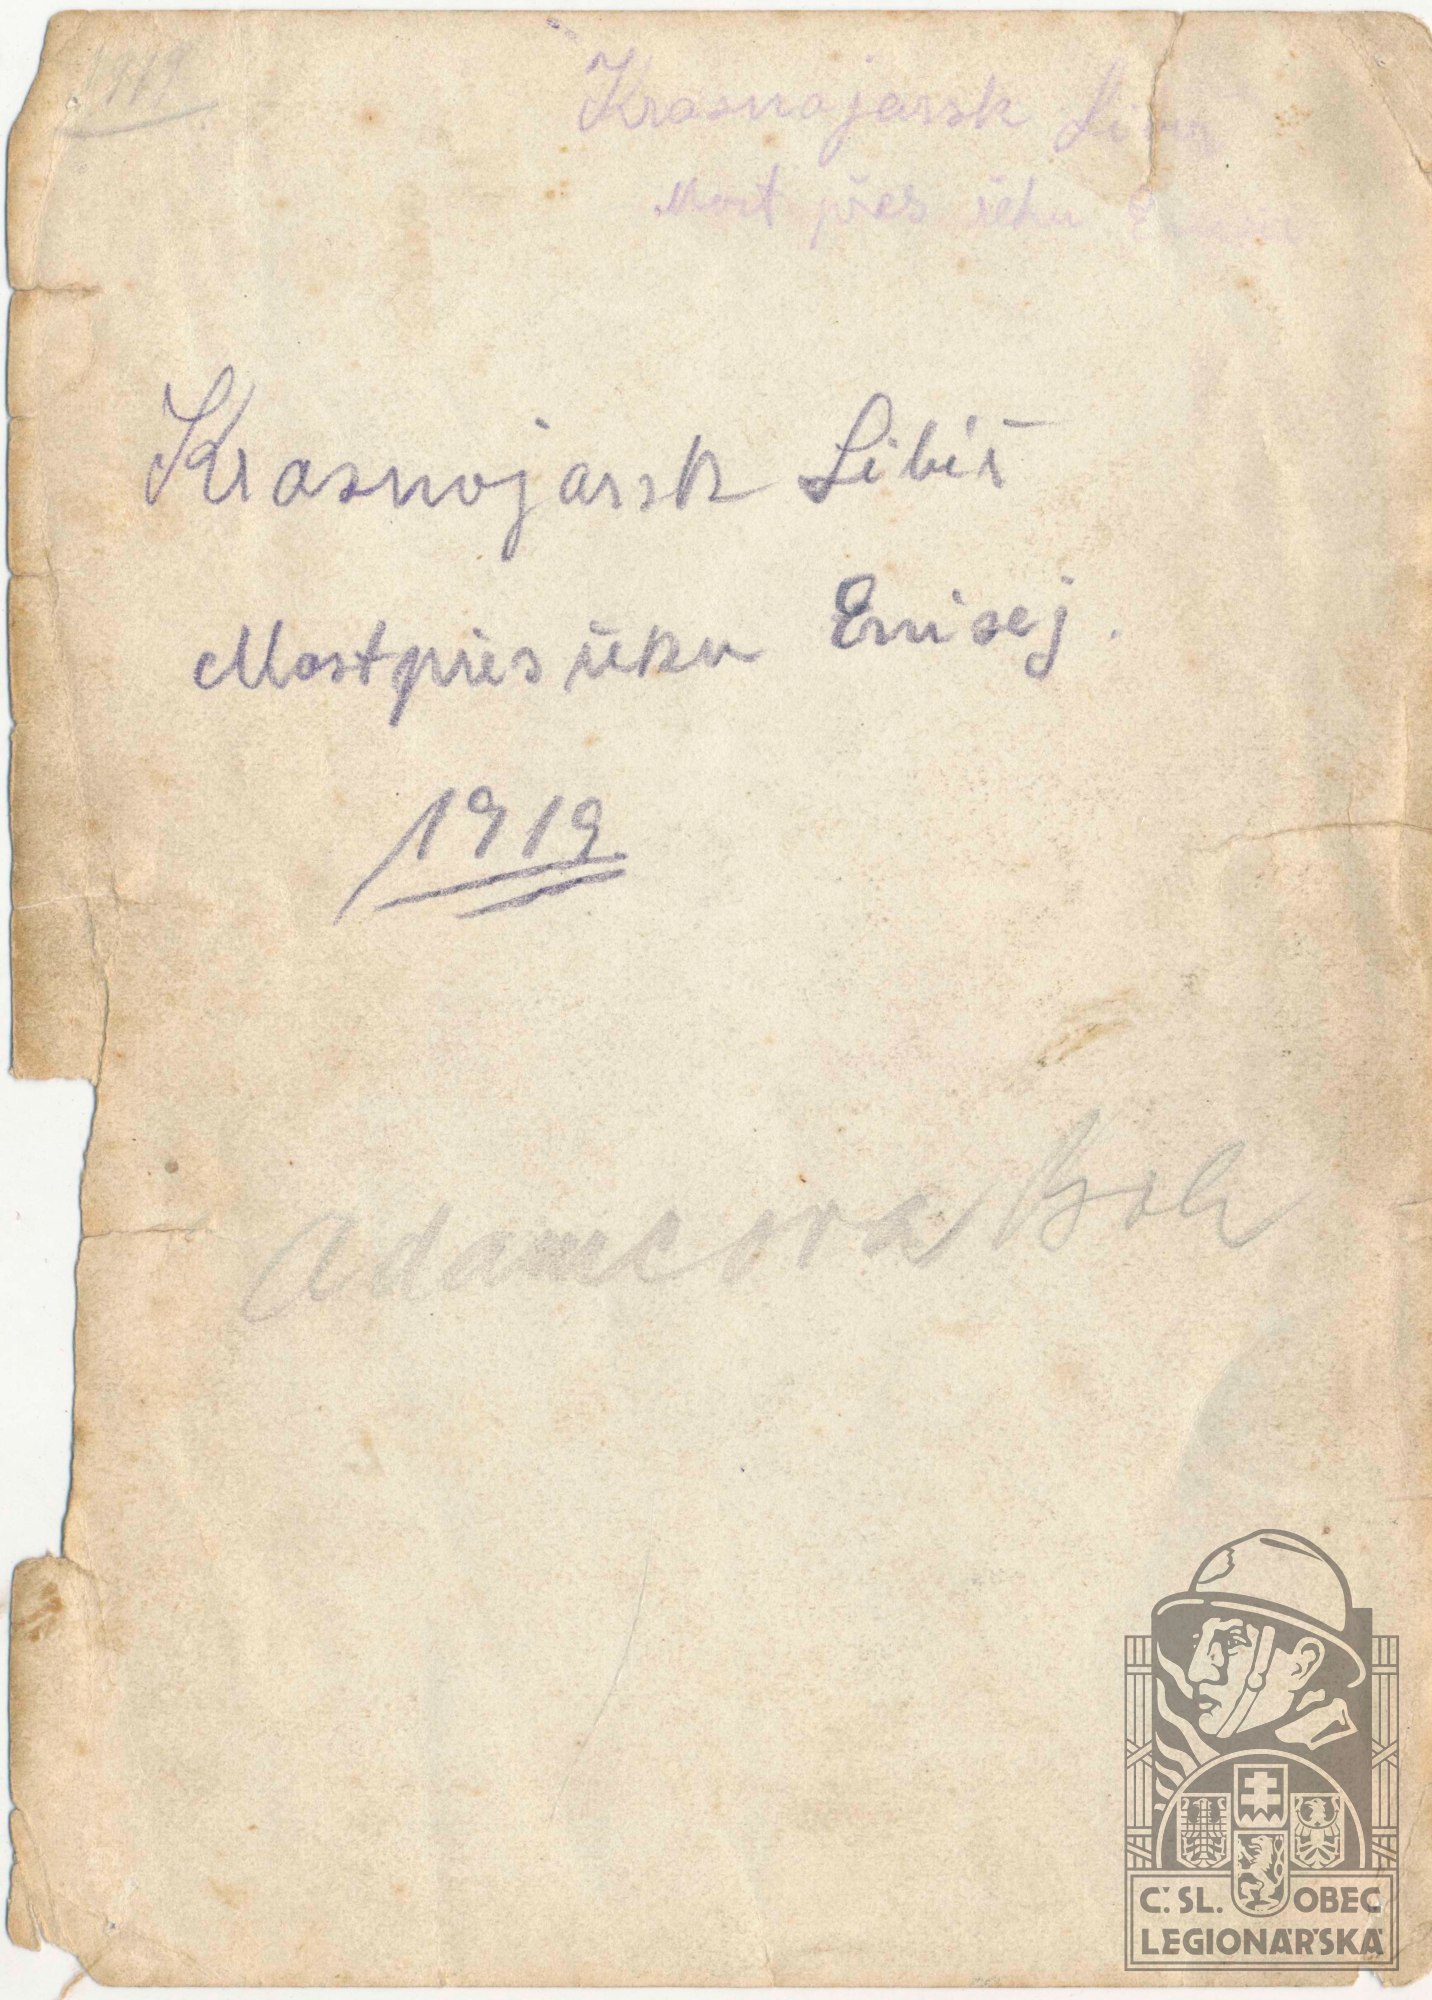 1919
Krasnojarsk
Most přes řeku
Krasnojarsk Sibiř
Most přes řeku Enisej.
1919
Adamcova Boh
Č. SL. OBEC
LEGIONÁŘSKÁ